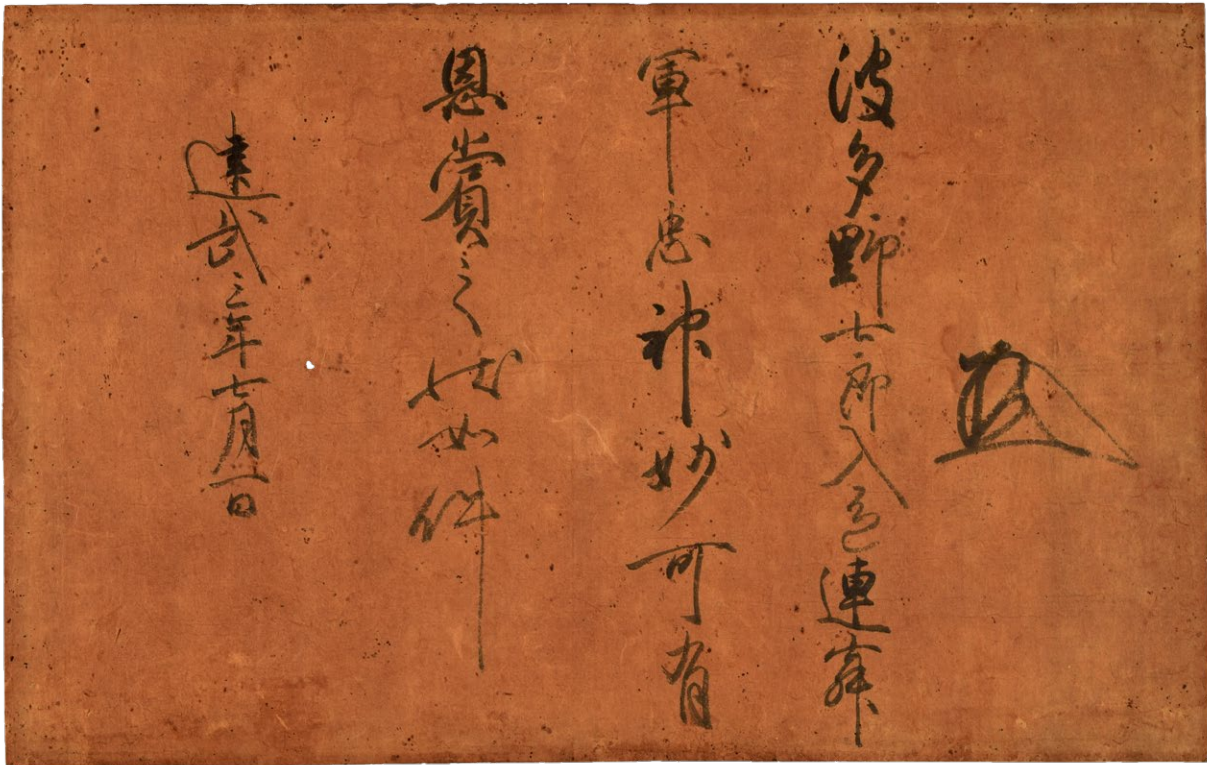 波多野七郎入道連
軍忠神妙可有
恩賞之状如件
建武三年七月日